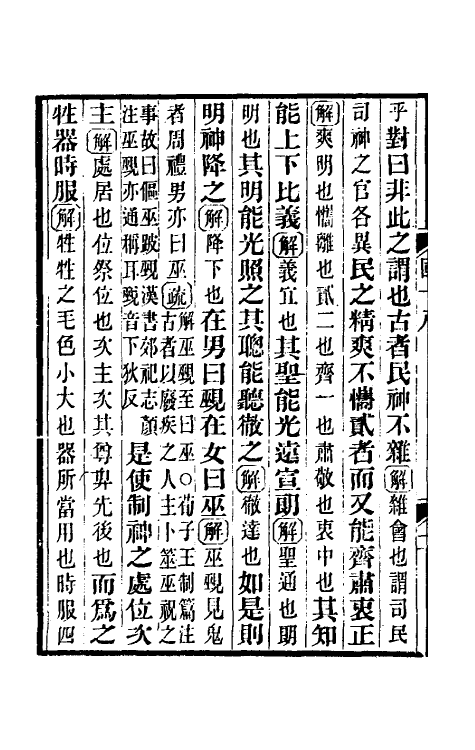 乎對曰非此之謂也古者民神不雜解雜會也謂司民
司神之官各異民之精爽不懏貳者而又能齊肅衷正
解爽明也懏離也貳二也齊一也肅敬也衷中也其知
能上下比義解義宜也其聖能光遠宣朗解聖通也朗
明也其明能光照之其聰能聽徹之解徹達也如是則
明神降之解降下也在男曰覡在女曰巫解巫覡見鬼
者周禮男亦曰巫疏解巫覡至曰巫○荀子王制篇注
古者以廢疾之人主卜筮巫祝之
事故曰傴巫跛覡漢書郊祀志顔
注巫覡亦通稱耳覡音下狄反
是使制神之處位次
主解處居也位祭位也次主次其尊卑先後也而爲之
牲器時服解牲牲之毛色小大也器所當用也時服四